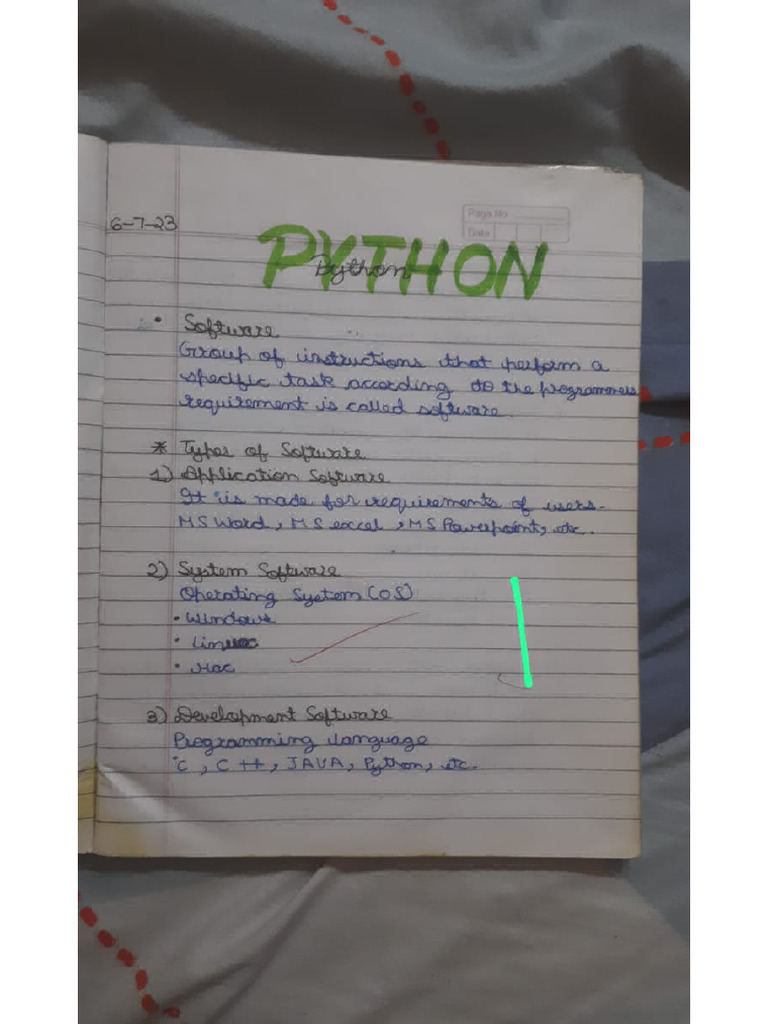 Page No
Date
6-7-23
PYTHON
Python
• Software
Group of instructions that perform a
specific task according to the programmers
requirement is called software.
* Types of Software
1) Application Software
It is made for requirements of users.
MS Word, MS excel, MS Powerpoint, etc.
2) System Software
Operating System (OS)
• Windows
• Linux
• Mac
3) Development Software
Programming language
C, C++, JAVA, Python, etc.